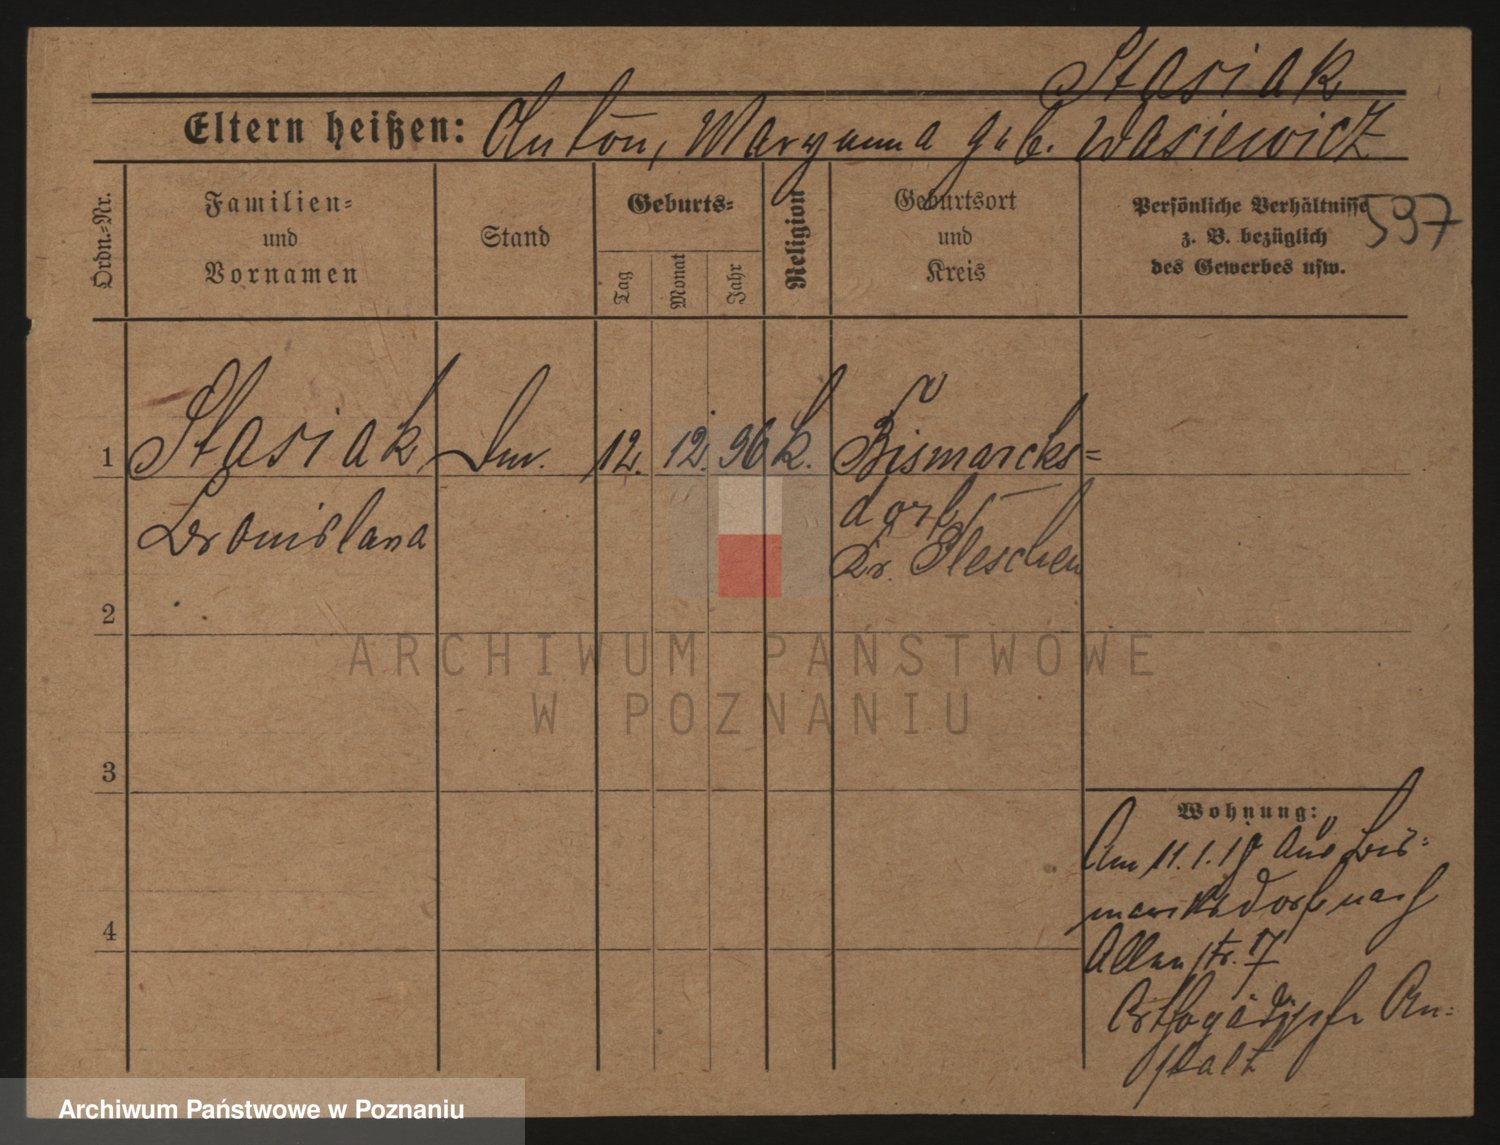 Stasiak
Eltern heißen: Anton, Maryanna geb. Wasiewicz
Ordn.-Nr.
Familien-
und
Vornamen
Stand
Geburts-
Tag
Monat
Jahr
Religion
Geburtsort
und
Kreis
Persönliche Verhältnisse
z. B. bezüglich
des Gewerbes usw.
597
1 Stasiak 12. 12. 96 k. Bismarcks-
Bronislava dorf
Kr. Pleschen
2
3
4
Wohnung:
Am 11.1.19 aus Bis-
marcksdorf nach
Allenstr. 17
Orthopädische An-
stalt
ARCHIWUM PAŃSTWOWE
W POZNANIU
Archiwum Państwowe w Poznaniu